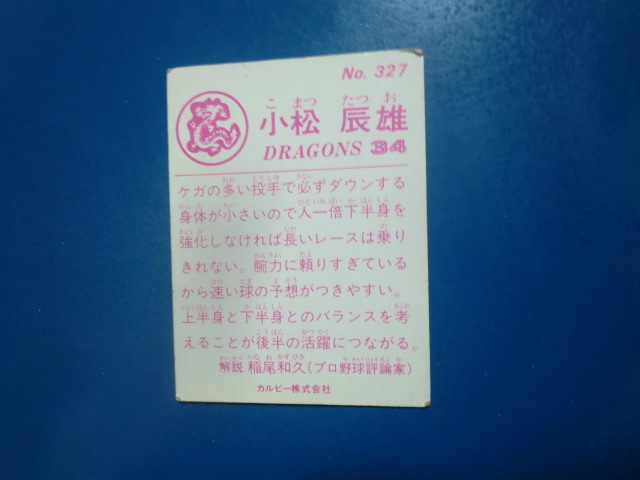 No. 327
こ まつ たつ お
小松 辰雄
DRAGONS 34
ケガの多い投手で必ずダウンする
身体が小さいので人一倍下半身を
強化しなければ長いレースは乗り
きれない。腕力に頼りすぎている
から速い球の予想がつきやすい。
上半身と下半身とのバランスを考
えることが後半の活躍につながる。
解説 稲尾和久(プロ野球評論家)
カルビー株式会社